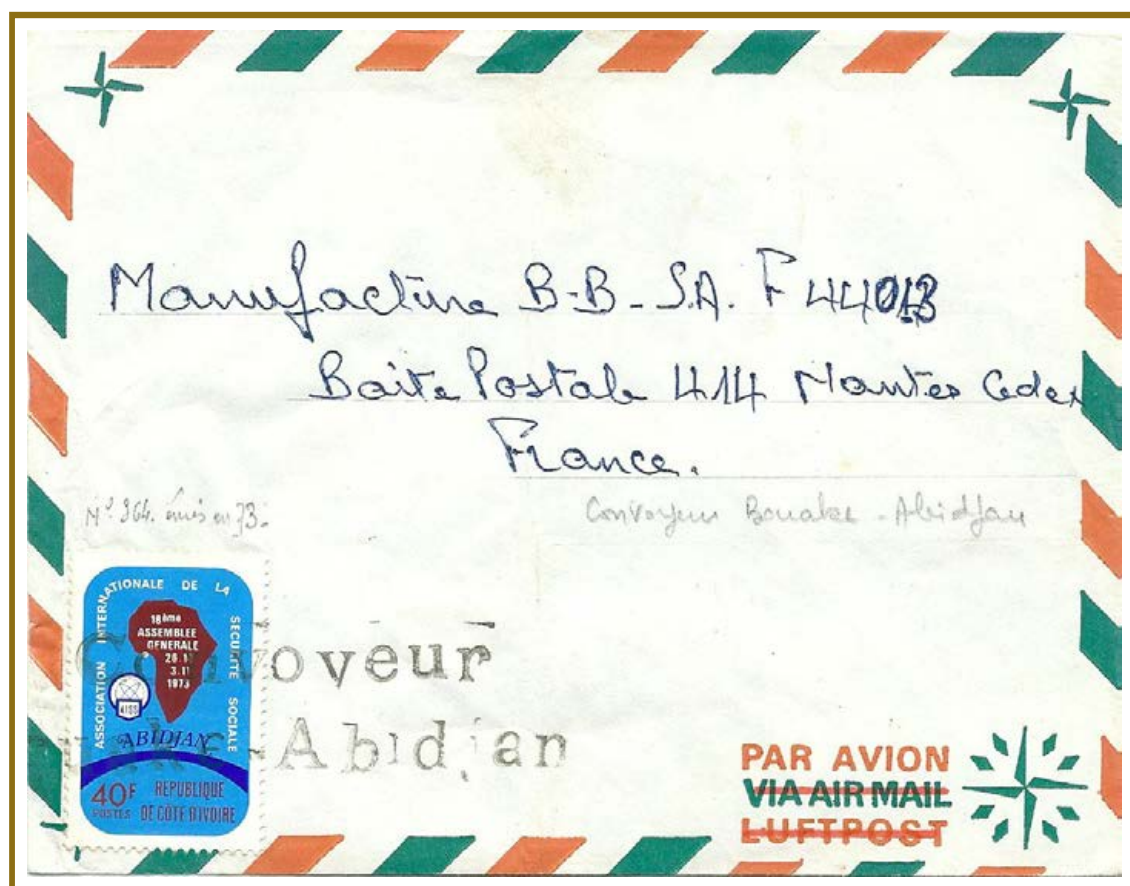 Manufacture B-B-S.A. F 44013
Boite Postale 414 Nantes Cedex
France.
N° 364. émis en 73.
Convoyeur Bouake - Abidjan
ASSOCIATION INTERNATIONALE DE LA SECURITE SOCIALE
18ème
ASSEMBLEE
GENERALE
3.11
1973
AISS
ABIDJAN
40F REPUBLIQUE
POSTES DE CÔTE D'IVOIRE
Convoyeur
Abidjan
PAR AVION
VIA AIR MAIL
LUFTPOST